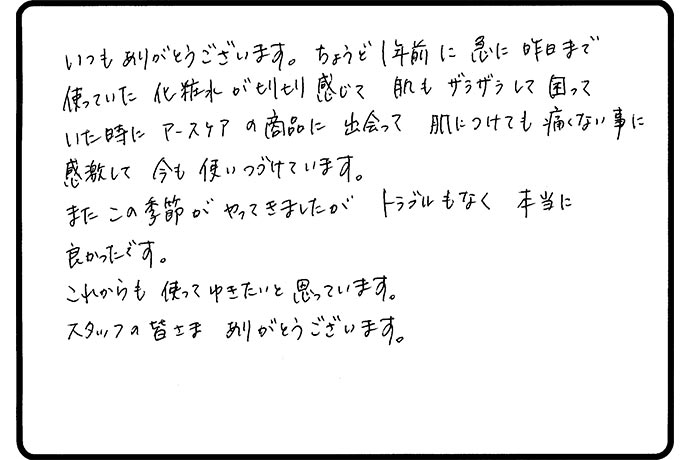 いつもありがとうございます。ちょうど1年前に急に昨日まで
使っていた化粧水がヒリヒリ感じて肌もザラザラして困って
いた時にアースケアの商品に出会って肌につけても痛くない事に
感激して今も使いつづけています。
またこの季節がやってきましたがトラブルもなく本当に
良かったです。
これからも使ってゆきたいと思っています。
スタッフの皆さまありがとうございます。